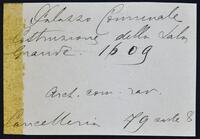 Palazzo Comunale
Costruzione della Sala
Grande. 1609
Arch. com. rav.
Cancelleria 79 carte 8